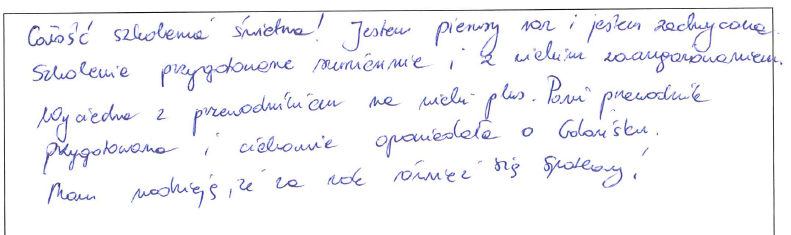 Całość szkolenia świetna! Jestem pierwszy raz i jestem zachwycona.
Szkolenie przygotowane sumiennie i z wielkim zaangażowaniem.
Wycieczka z przewodnikiem na wielki plus. Pani przewodnik
przygotowana i ciekawie opowiedała o Gdańsku.
Mam nadzieję, że za rok również się spotkamy!